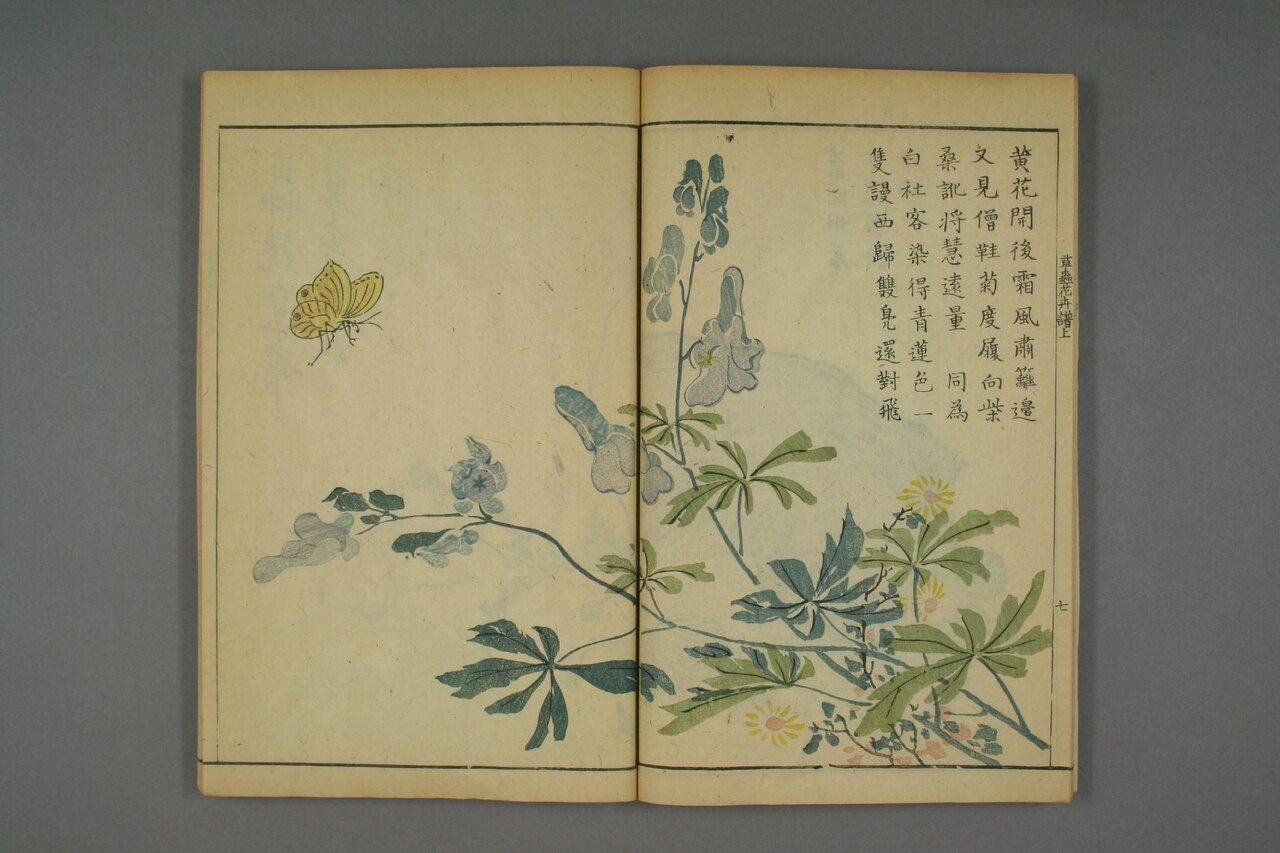 黄花開後霜風肅籬邊
又見僧鞋菊度履向柴
桑訛将慧遠量　同為
白社客染得青蓮色一
隻謾西歸雙凫還對飛
草蟲花卉譜上
七